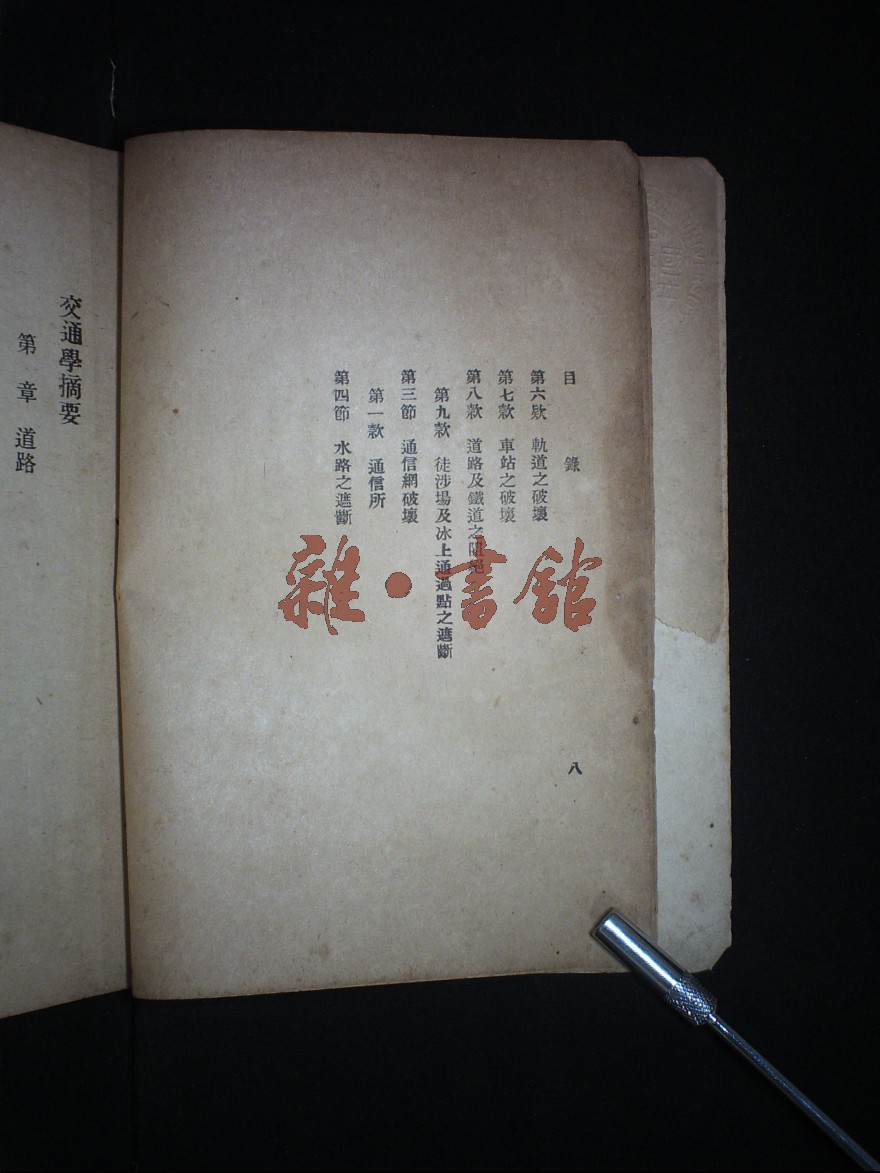 目錄
第六欵 軌道之破壞
第七款 車站之破壞
第八款 道路及鐵道之阻絕
第九款 徒涉場及冰上通過點之遮斷
第三節 通信網破壞
第一款 通信所
第四節 水路之遮斷
八
交通學摘要
第 章 道路
雜·書館